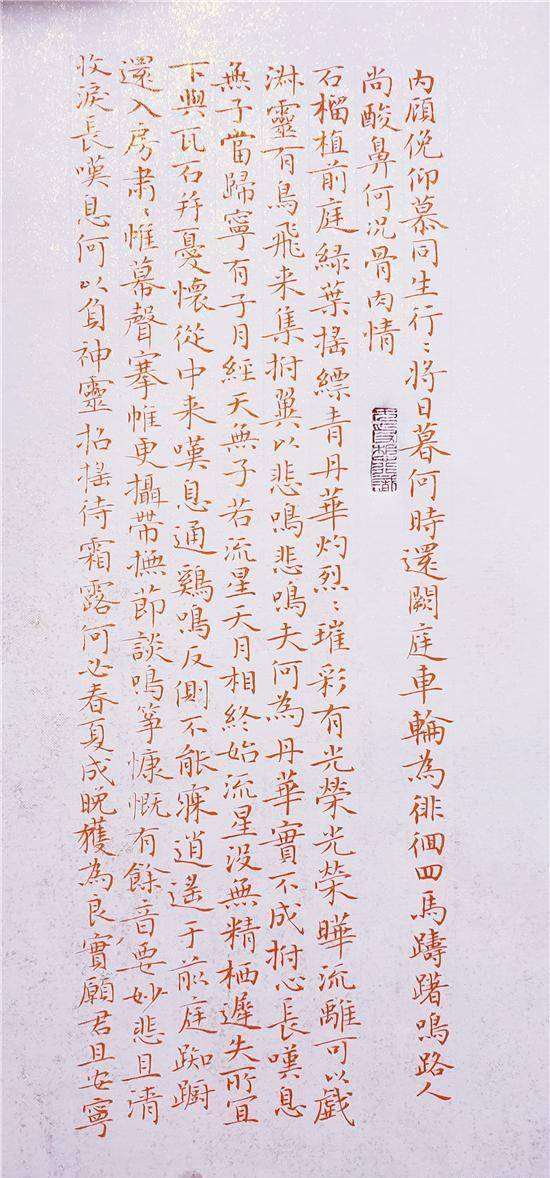 内顧俛仰慕同生行〻將日暮何時還闕庭車輪為徘徊四馬躊躇鳴路人
尚酸鼻何況骨肉情
石榴植前庭綠葉搖縹青丹華灼烈〻璀彩有光榮光榮曄流離可以戲
淋靈有鳥飛来集拊翼以悲鳴悲鳴夫何為丹華實不成拊心長嘆息
無子當歸寧有子月經天無子若流星天月相終始流星没無精栖遲失所宜
下與瓦石并憂懷從中来嘆息通鷄鳴反側不能寐逍遙于前庭踟躕
還入房肅〻帷幕聲搴帷更攝帶撫節談鳴筝慷慨有餘音要妙悲且清
收淚長嘆息何以負神靈招搖待霜露何必春夏成晚獲為良實願君且安寧